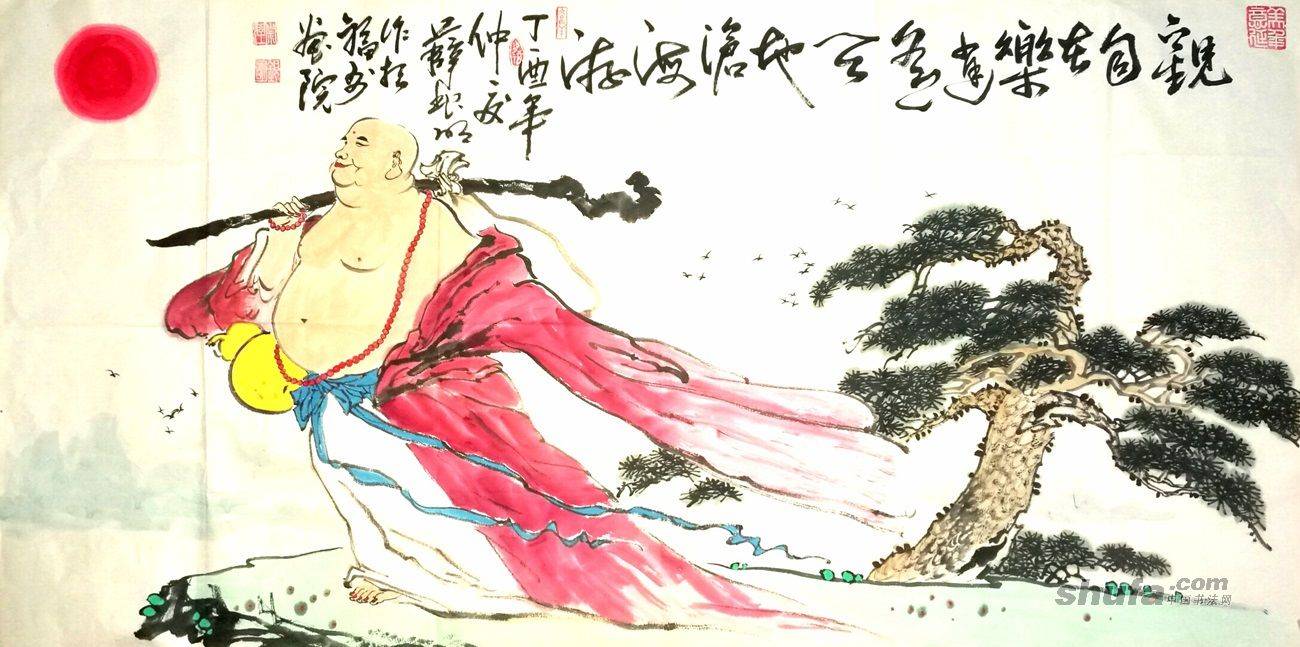 觀自在樂逍遙天地滄海游
丁酉年
仲夏
薛明
作於
福
畫院
美意延年
shufa.com
中国书法网